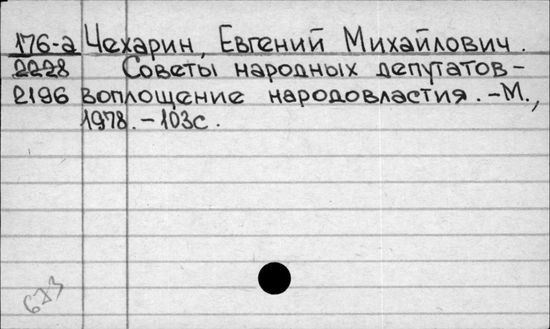 176-а Чехарин, Евгений Михайлович.
2228 Советы народных депутатов-
2196 воплощение народовластия.-М.,
1978.-103с.
673